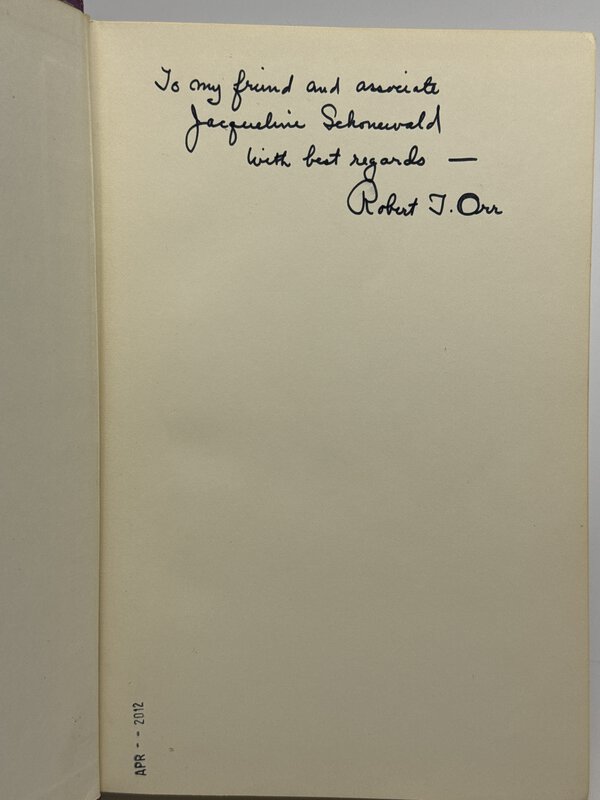 To my friend and associate
Jacqueline Schonewald
With best regards —
Robert T. Orr
APR -- 2012